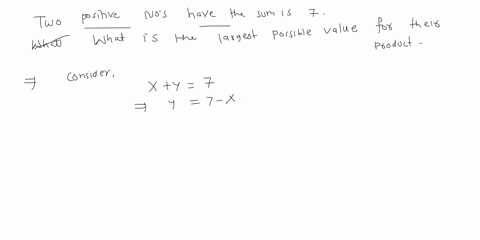 Two positive No's have the sum is 7.
What is the largest possible value for their product.
⇒ Consider,
x + y = 7
⇒ y = 7 - x.